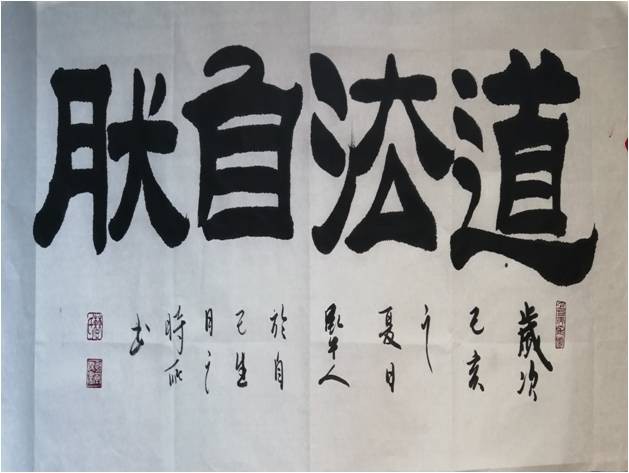 道法自肰
歲次
己亥
之
夏日
牛人
於自
己生
日之
時所
书